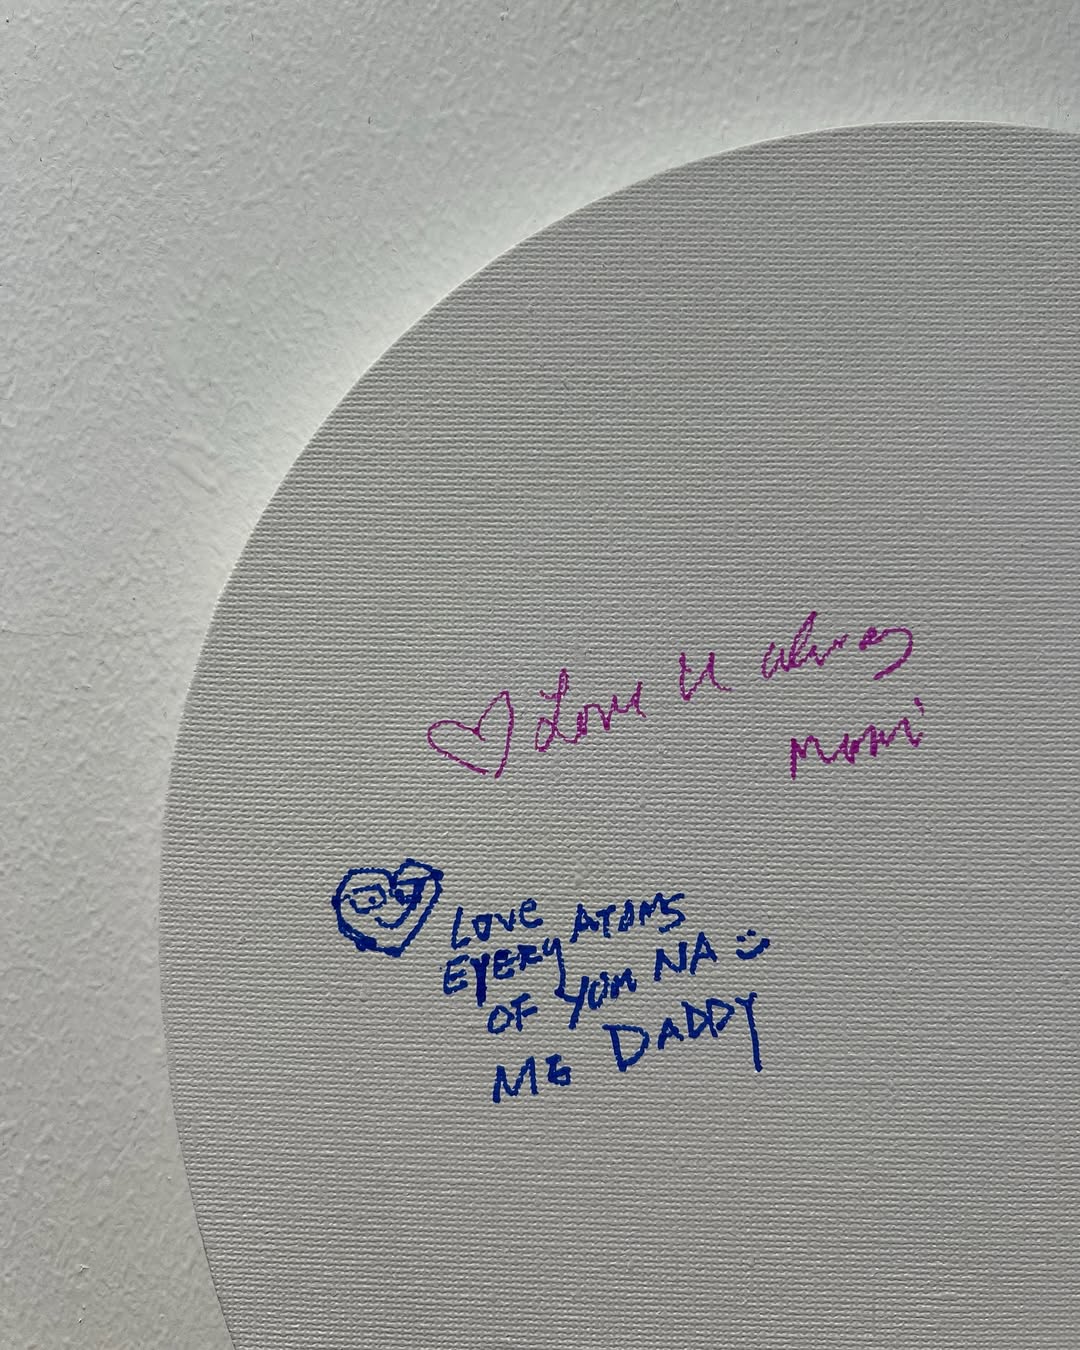 Love u always
Mom
LOVE
EVERY ATOMS
OF YOM NA
ME DADDY